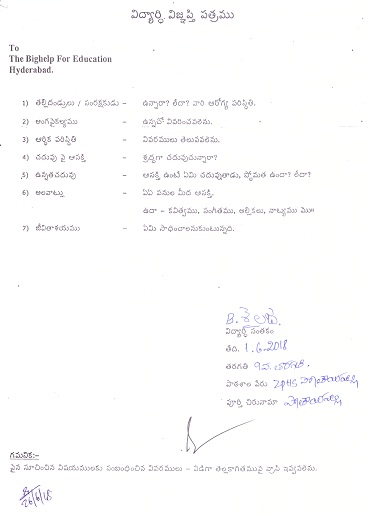 విద్యార్థి విజ్ఞప్తి పత్రము
To
The Bighelp For Education
Hyderabad.
1) తల్లిదండ్రులు / సంరక్షకుడు – ఉన్నారా? లేదా? వారి ఆరోగ్య పరిస్థితి.
2) అంగవైకల్యము – ఉన్నచో వివరించవలెను.
3) ఆర్థిక పరిస్థితి – వివరములు తెలుపవలెను.
4) చదువు పై ఆసక్తి – శ్రద్ధగా చదువుచున్నారా?
5) ఉన్నతచదువు – ఆసక్తి ఉంటే ఏమి చదువుతాడు, స్థోమత ఉందా? లేదా?
6) అలవాట్లు – ఏఏ పనుల మీద ఆసక్తి.
ఉదా – కవిత్వము, సంగీతము, అల్లికలు, నాట్యము మొ॥
7) జీవితాశయము – ఏమి సాధించాలనుకుంటున్నది.
B.
విద్యార్థి సంతకం
తేది. 1.6.2018
తరగతి
పాఠశాల పేరు ZPHS
పూర్తి చిరునామా
గమనిక:–
పైన సూచించిన విషయములకు సంబంధించిన వివరములు – విడిగా తెల్లకాగితముపై వ్రాసి ఇవ్వవలెను.
26/6/18